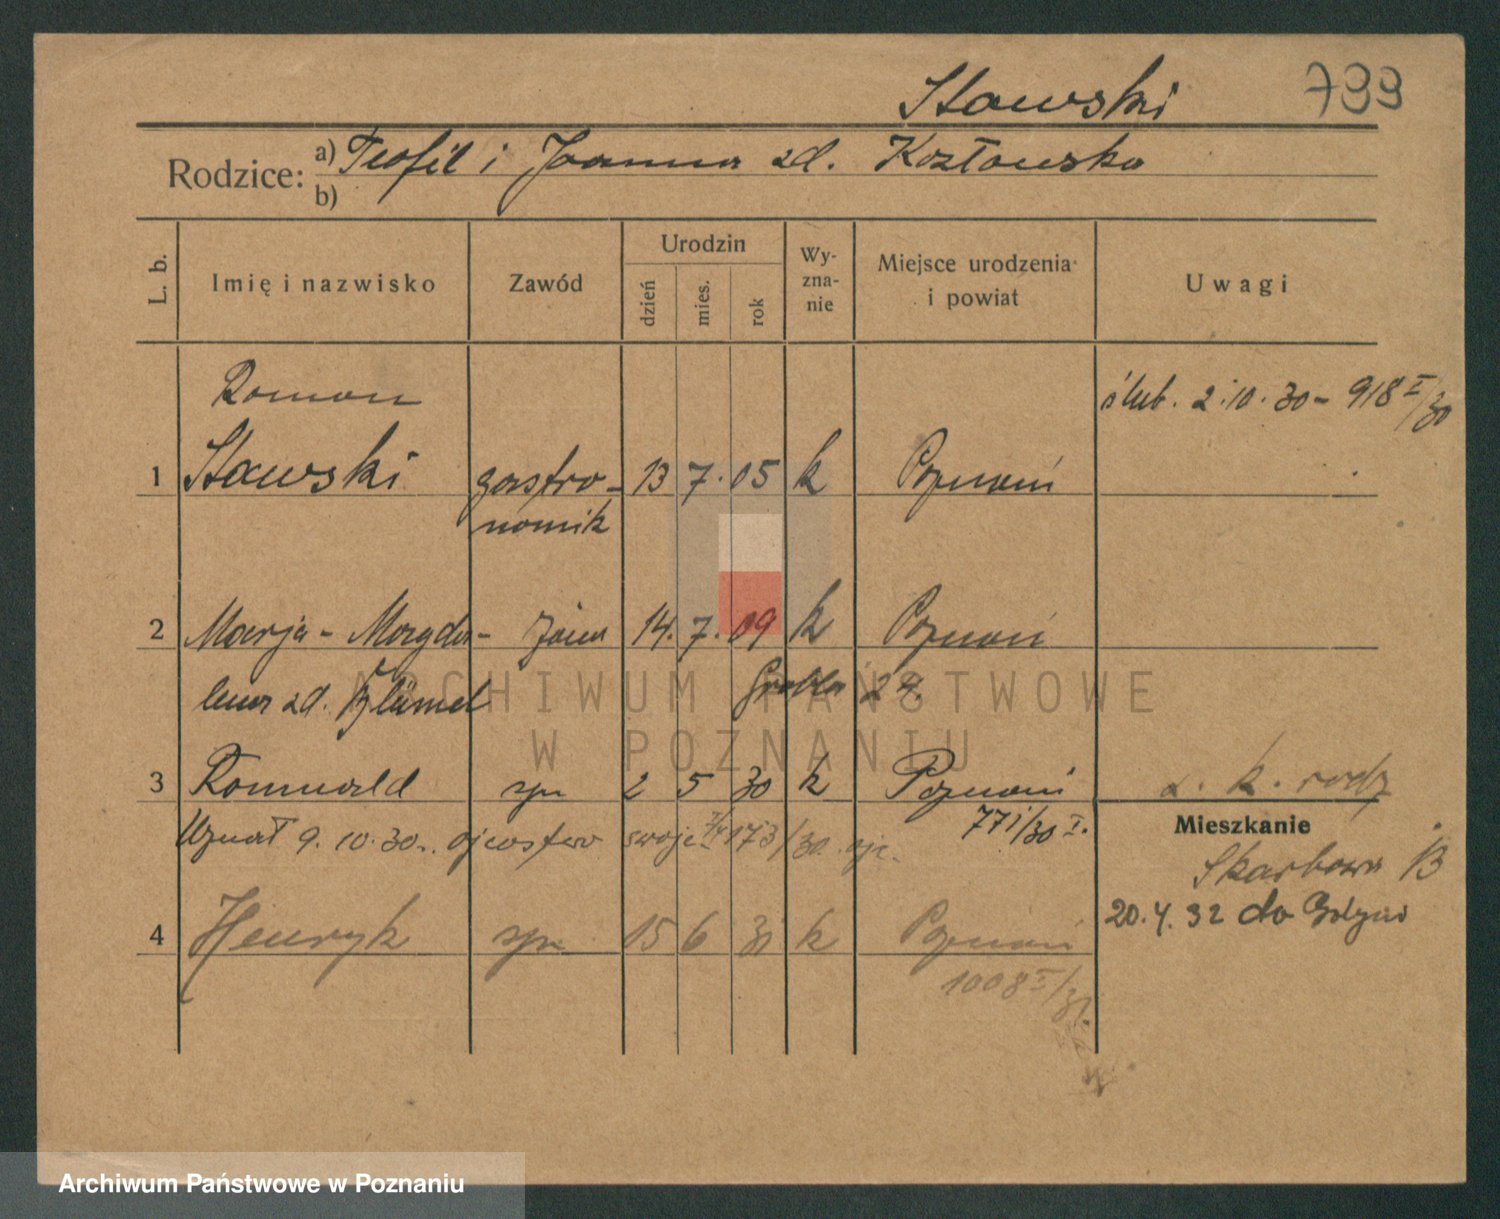 Stawski 799
Rodzice: a) Teofil i Joanna zd. Kozłowska
b)
L. b. Imię i nazwisko Zawód Urodzin dzień mies. rok Wy-zna-nie Miejsce urodzenia i powiat Uwagi
Roman ślub. 2.10.30 - 918 I/30
1 Stawski gastro- 13 7. 05 k Poznań
nomik
2 Marja - Magda- żona 14. 7. 09 k Poznań
lena zd. Blümel Grobla 24.
3 Romuald syn 2 5 30 k Poznań z. k. rodz
771/30 I.
Uznał 9.10.30. ojcostwo swoje
Mieszkanie
Skarbowa 13
4 Henryk syn 15 6 31 k Poznań
20.4.32 do Gdyni
1008 I/31.
ARCHIWUM PAŃSTWOWE
W POZNANIU
Archiwum Państwowe w Poznaniu